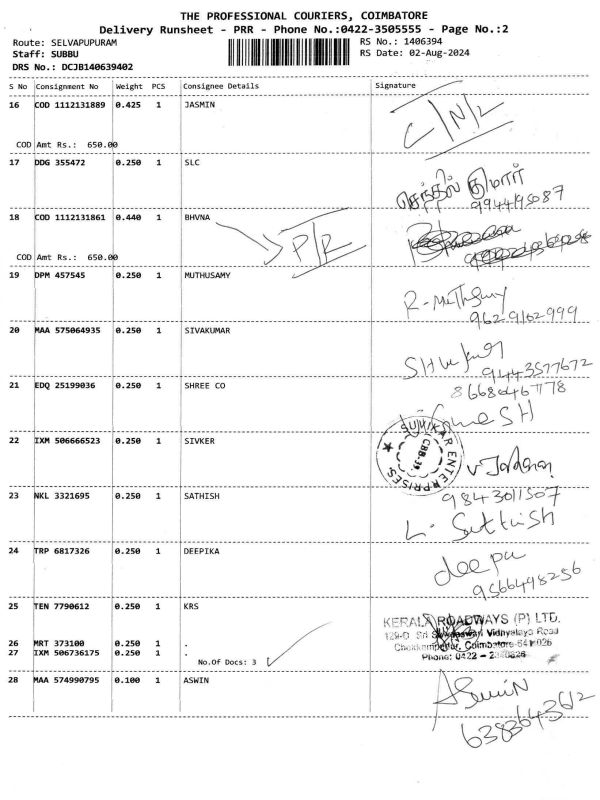 THE PROFESSIONAL COURIERS, COIMBATORE
Delivery Runsheet - PRR - Phone No.:0422-3505555 - Page No.:2
Route: SELVAPUPURAM
RS No.: 1406394
Staff: SUBBU
RS Date: 02-Aug-2024
DRS No.: DCJB140639402
S No Consignment No Weight PCS Consignee Details Signature
16 COD 1112131889 0.425 1 JASMIN C/N/L
COD Amt Rs.: 650.00
17 DDG 355472 0.250 1 SLC செந்தில் குமார்
9944195087
18 COD 1112131861 0.440 1 BHVNA P/R
COD Amt Rs.: 650.00
19 DPM 457545 0.250 1 MUTHUSAMY R-Muthusamy
9629162999
20 MAA 575064935 0.250 1 SIVAKUMAR
9443577672
21 EDQ 25199036 0.250 1 SHREE CO
22 IXM 506666523 0.250 1 SIVKER ENTERPRISES CBB-39.
23 NKL 3321695 0.250 1 SATHISH 9843011507
L. Sathish
24 TRP 6817326 0.250 1 DEEPIKA deepa
9566498256
25 TEN 7790612 0.250 1 KRS KERALA ROADWAYS (P) LTD.
26 MRT 373100 0.250 1 . 129-D Sri Vidhyalaya Road
27 IXM 506736175 0.250 1 . Coimbatore-641 026
No.Of Docs: 3 Phone: 0422 -
28 MAA 574990795 0.100 1 ASWIN Aswin
6383643612